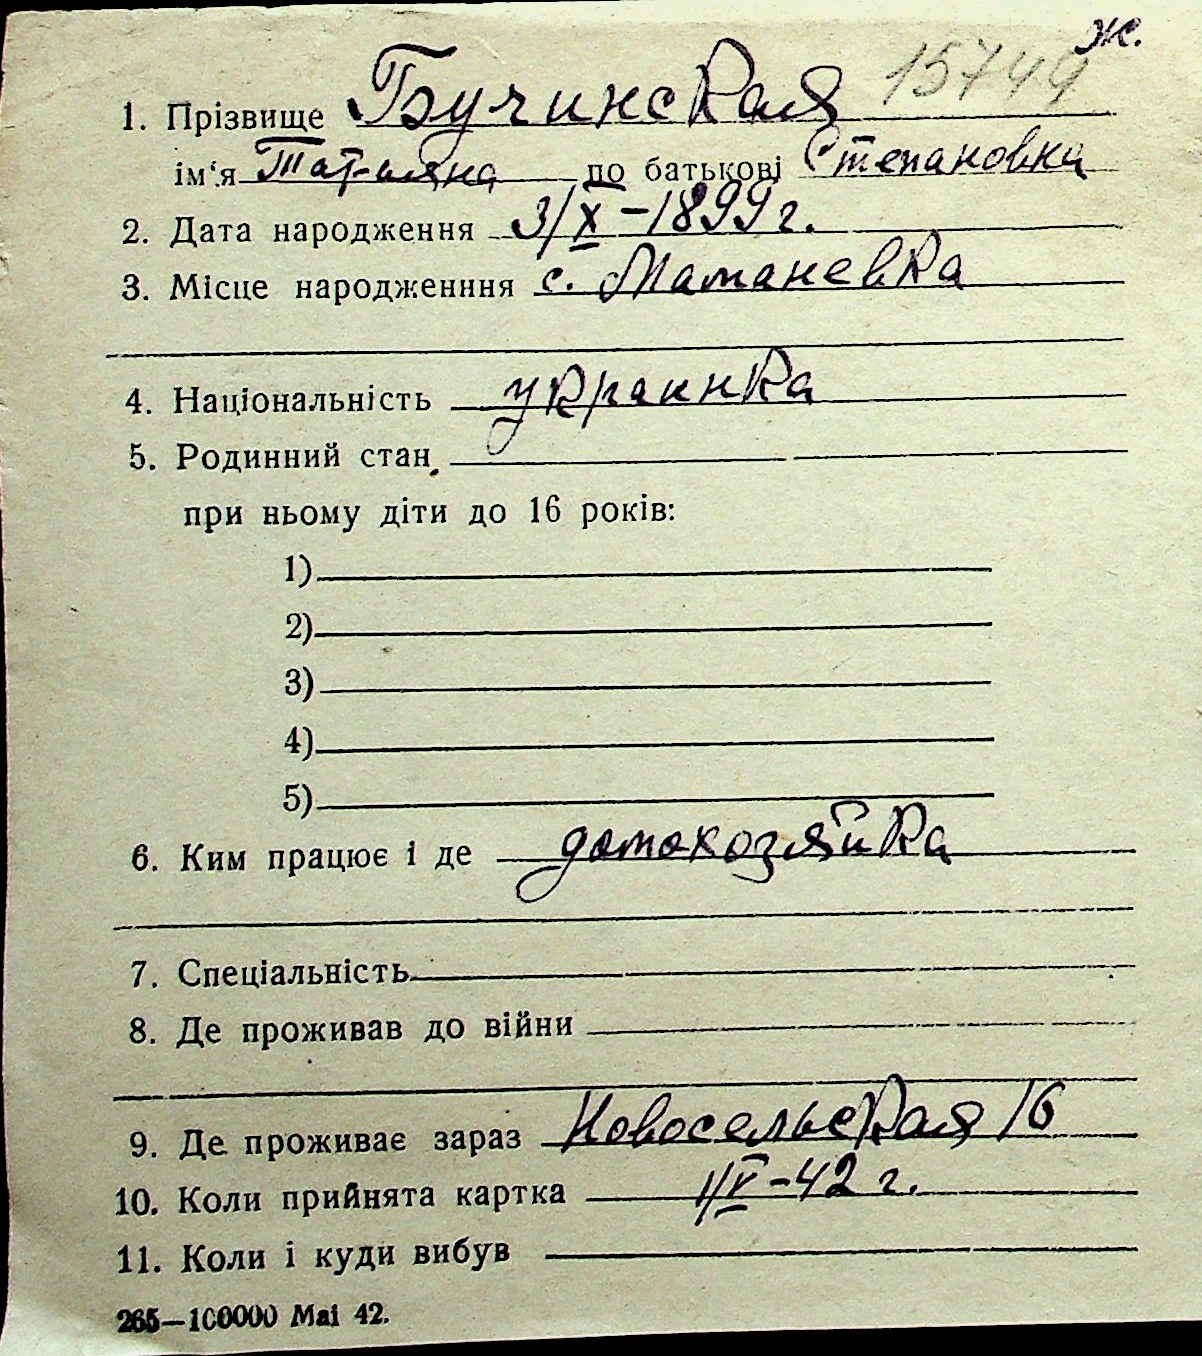 ж.
15749
1. Прізвище Бучинская
ім‘я Татьяна по батькові Степановна
2. Дата народження 3/X –1899 г.
3. Місце народженння с. Маманевка
4. Національність украинка
5. Родинний стан
при ньому діти до 16 років:
1)
2)
3)
4)
5)
6. Ким працює і де домохозяйка
7. Спеціальність
8. Де проживав до війни
9. Де проживає зараз Новосельская 16
10. Коли прийнята картка 1/V –42 г.
11. Коли і куди вибув
265—100000 Mai 42.